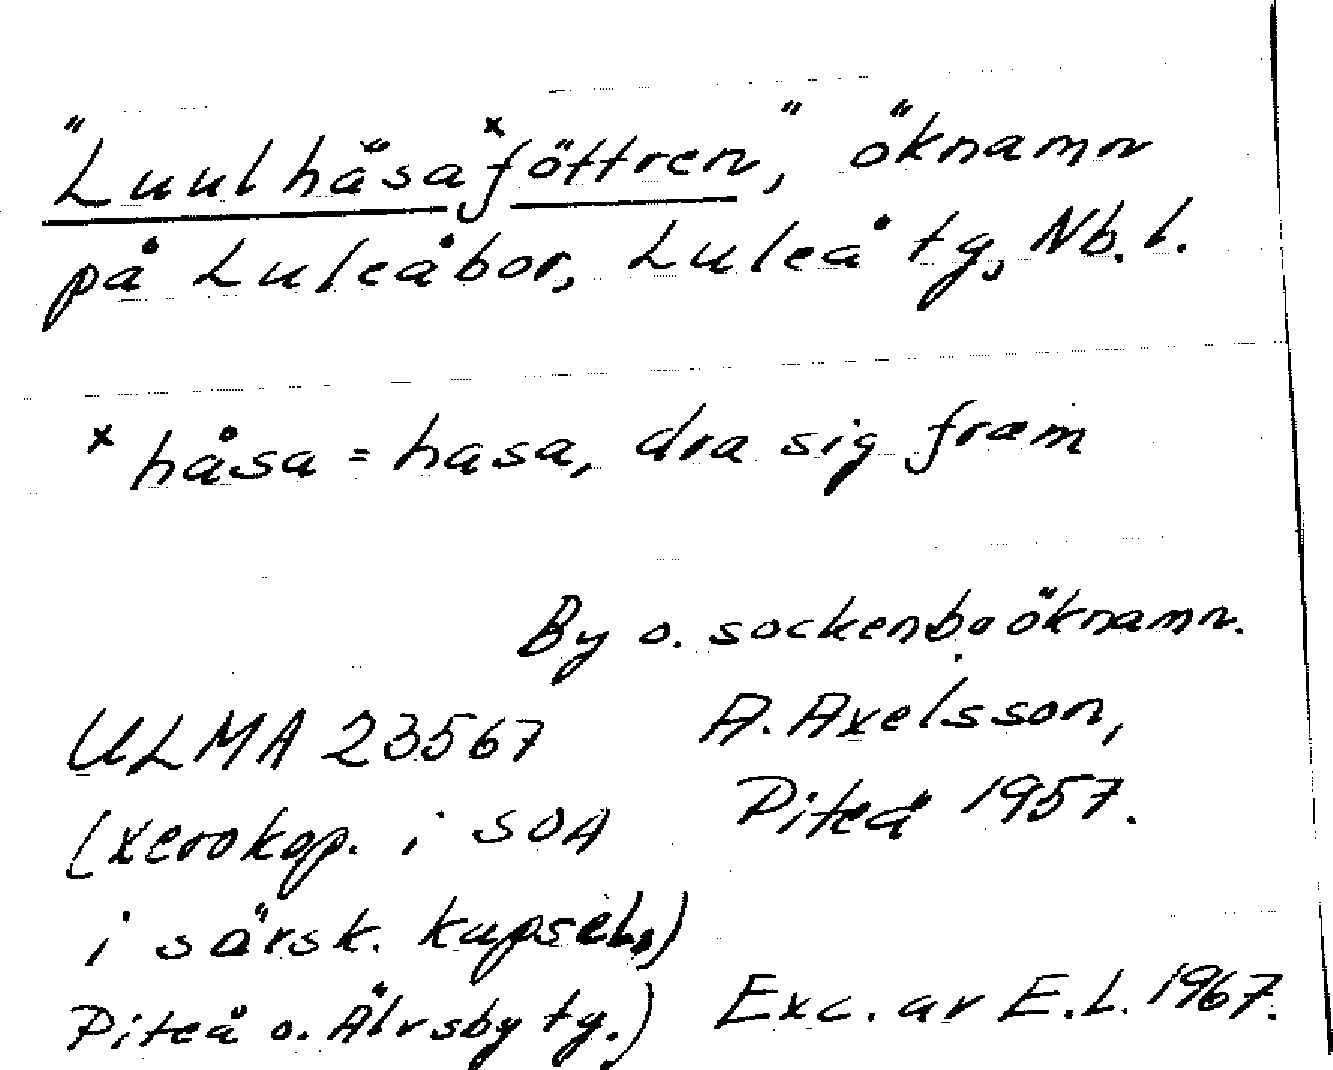 "Luulhåsaˣföttren," öknamn
på Luleåbor, Luleå tg, Nb. l.
x håsa = hasa, dra sig fram
By o. sockenboöknamn.
ULMA 23567 A. Axelsson,
(xerokop. i SOA Piteå 1957.
i särsk. kapsel,)
Piteå o. Älvsby tg.) Exc. av E.L. 1967.